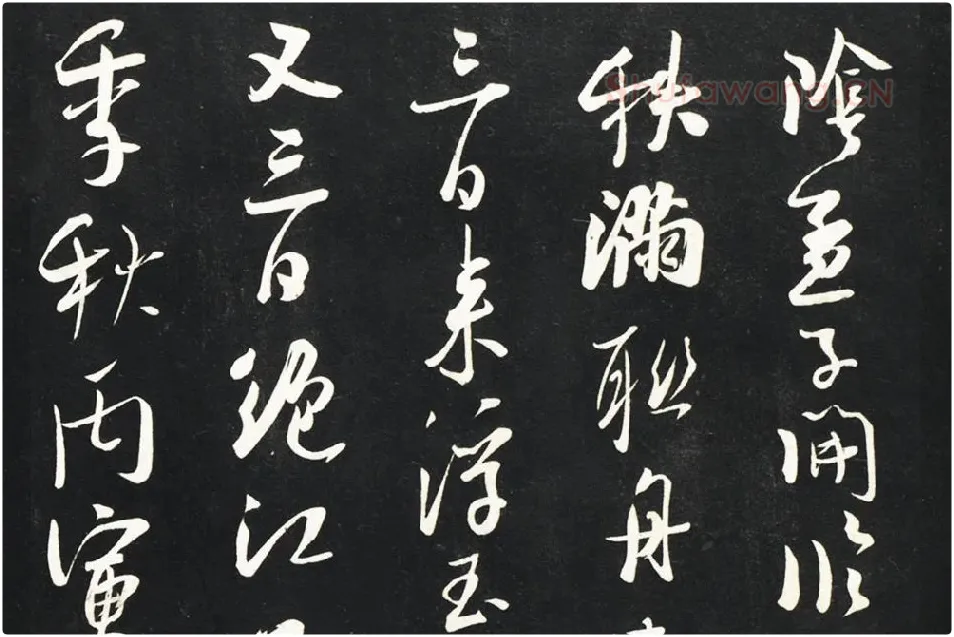 陰孟子開臨
秋滿聯舟
三百来浮玉
又三百絶江
季秋丙寅
Shufawang.CN